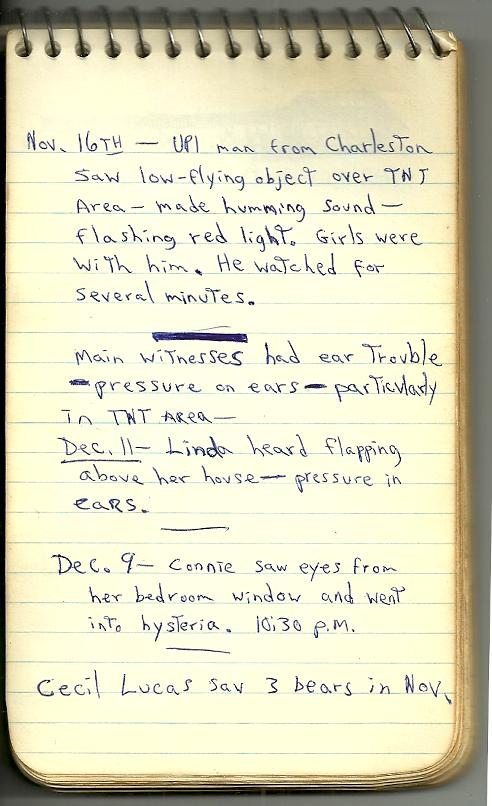 Nov. 16TH — UPI man from Charleston
saw low-flying object over TNT
Area — made humming sound —
flashing red light. Girls were
with him. He watched for
several minutes.
Main witnesses had ear trouble
— pressure on ears — particularly
in TNT AREA —
Dec. 11 — Linda heard flapping
above her house — pressure in
EARS.
Dec. 9 — Connie saw eyes from
her bedroom window and went
into hysteria. 10:30 p.m.
Cecil Lucas sav 3 bears in Nov.